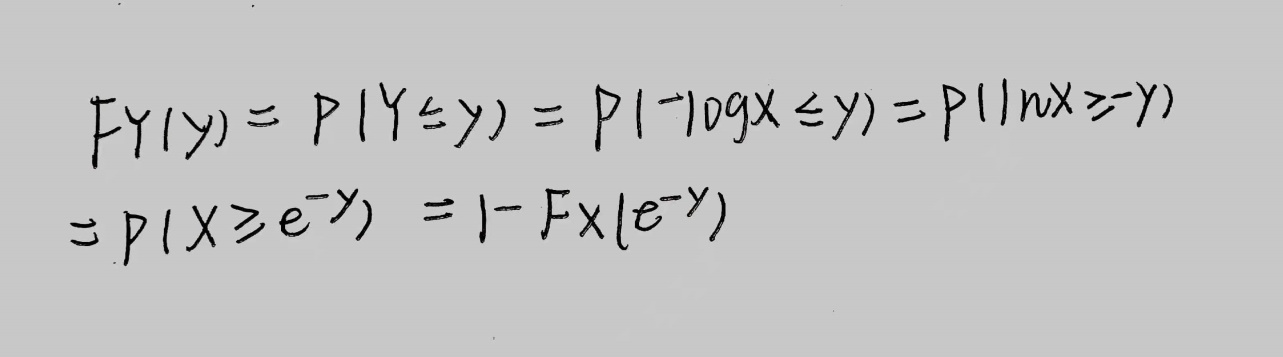 FY(y) = P(Y ≤ y) = P(-logX ≤ y) = P(lnX ≥ -y)
= P(X ≥ e^{-y}) = 1 - FX(e^{-y})